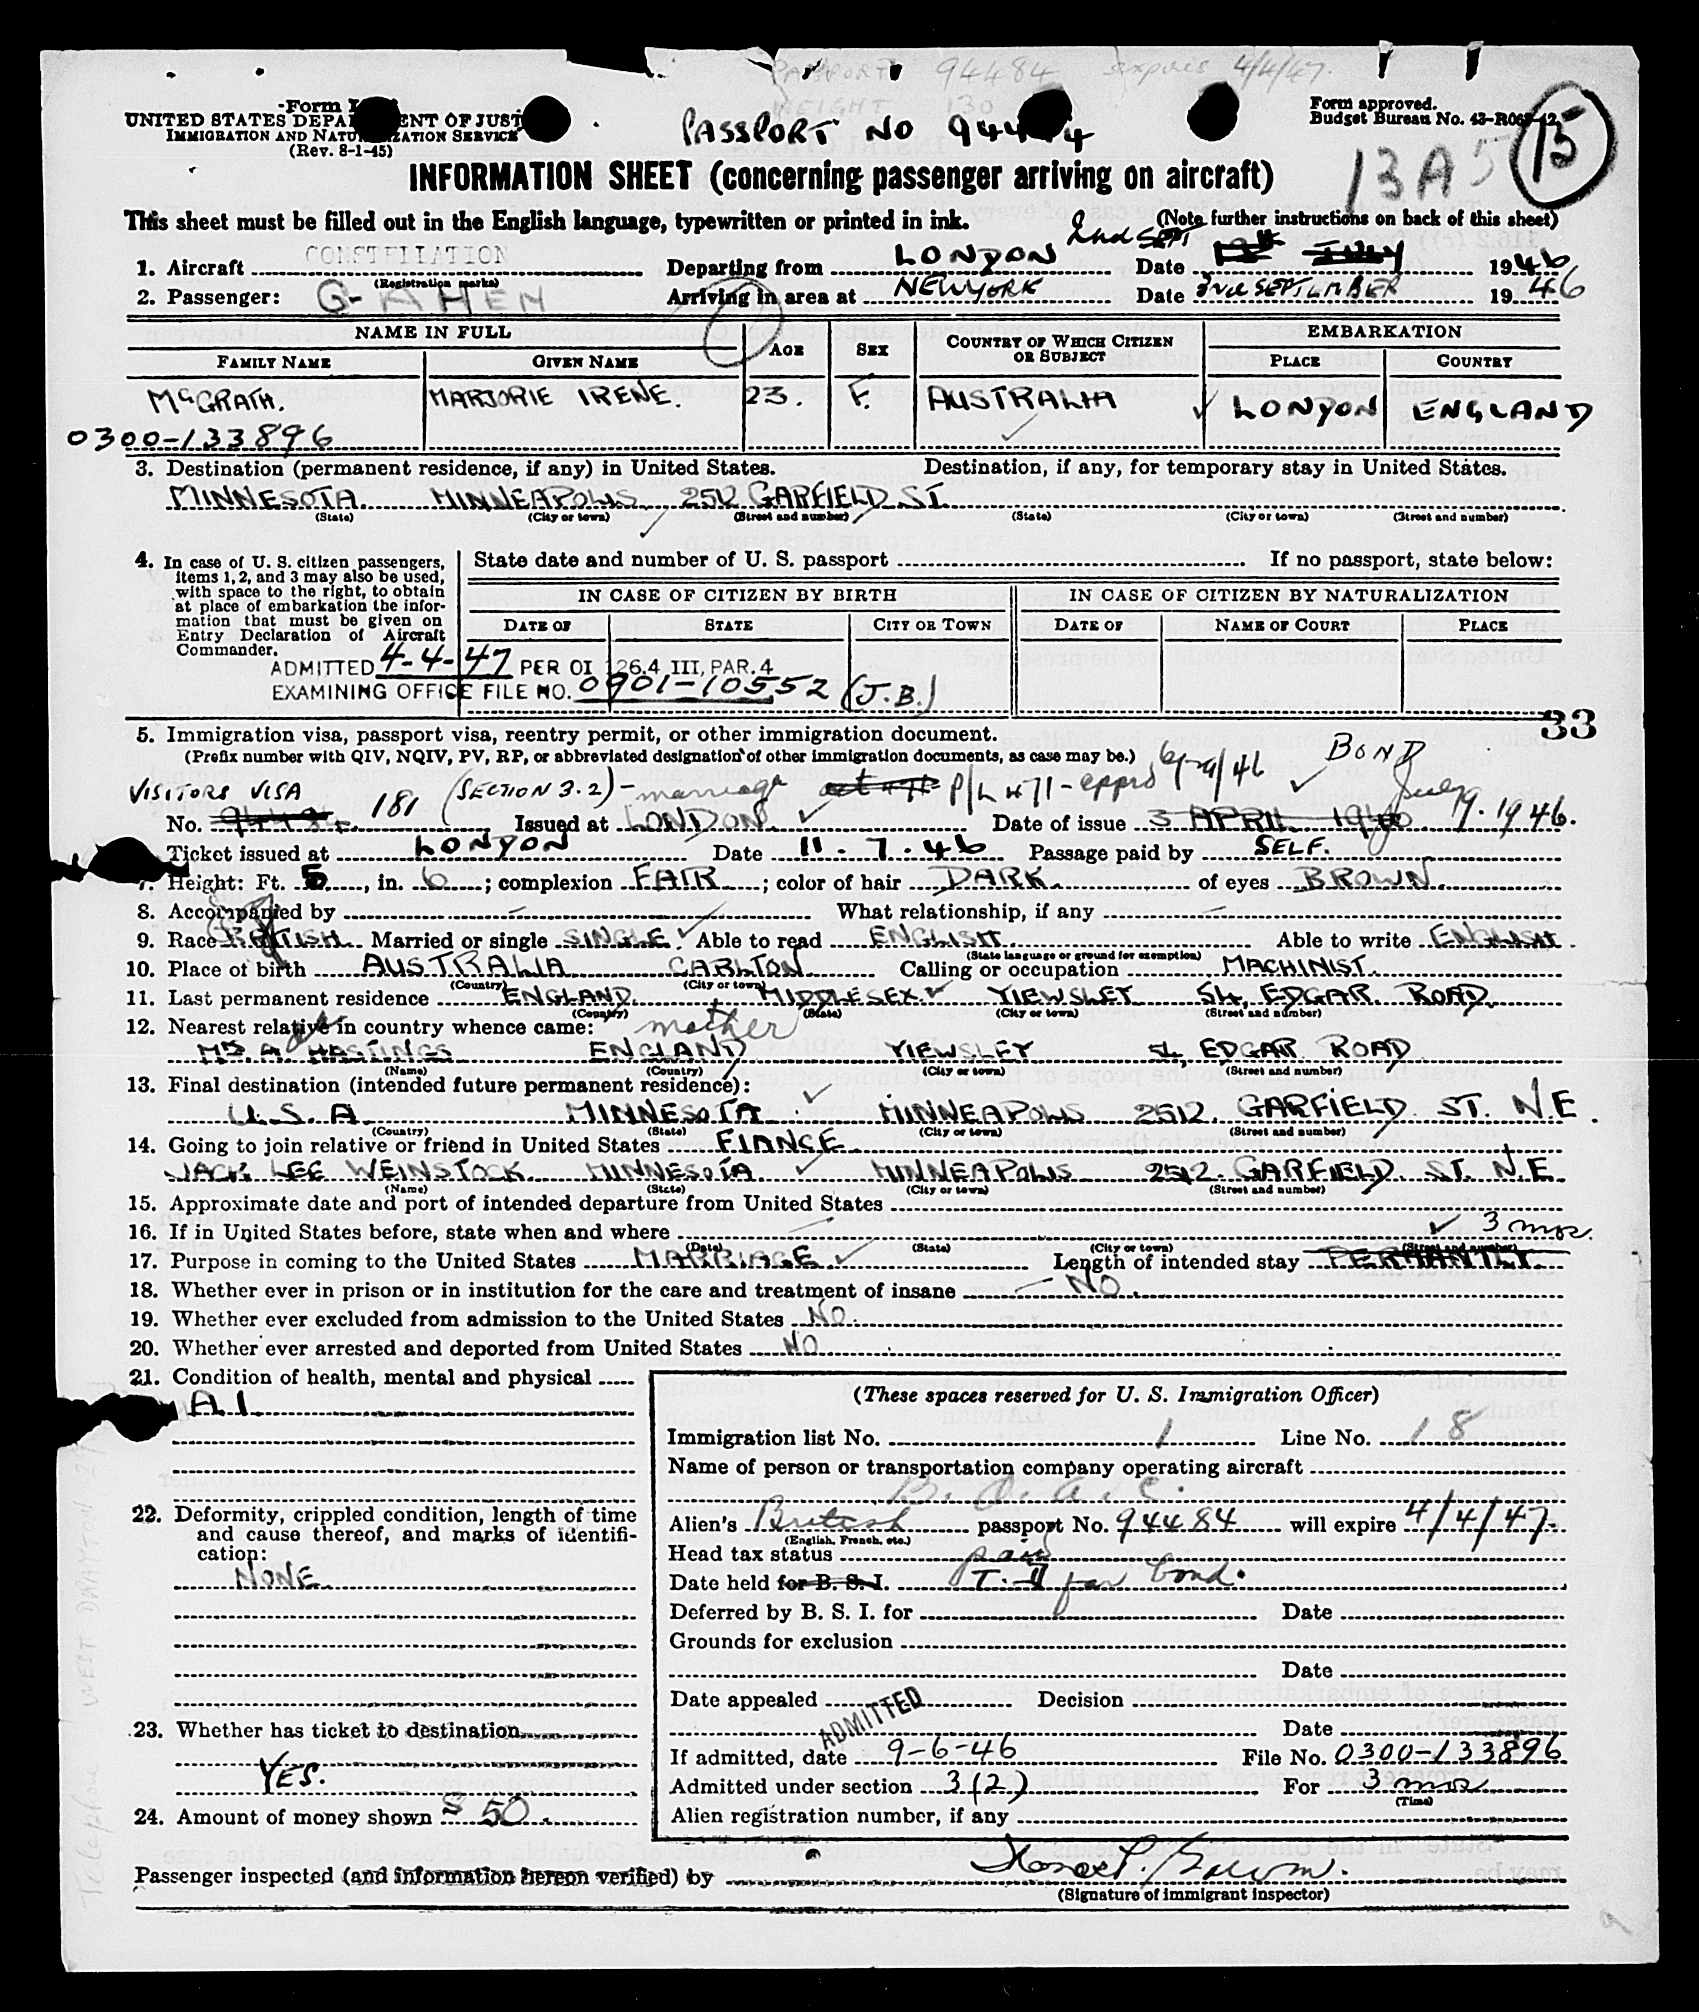 PASSPORT 94484 expires 4/4/47.
WEIGHT 130
Form
UNITED STATES DEPARTMENT OF JUSTICE
IMMIGRATION AND NATURALIZATION SERVICE
(Rev. 8-1-45)
PASSPORT NO 94484
Form approved.
Budget Bureau No. 43-R063-42
13A5
15
INFORMATION SHEET (concerning passenger arriving on aircraft)
This sheet must be filled out in the English language, typewritten or printed in ink.
(Note further instructions on back of this sheet)
1. Aircraft CONSTELLATION Departing from LONDON Date 2nd SEPT JULY 1946
(Registration marks)
2. Passenger: G-AHEN Arriving in area at NEWYORK Date 3rd SEPTEMBER 1946
NAME IN FULL AGE SEX COUNTRY OF WHICH CITIZEN OR SUBJECT EMBARKATION
FAMILY NAME GIVEN NAME PLACE COUNTRY
McGRATH. MARJORIE IRENE. 23. F. AUSTRALIA LONDON ENGLAND
0300-133896
3. Destination (permanent residence, if any) in United States. Destination, if any, for temporary stay in United States.
MINNESOTA MINNEAPOLIS 2512 GARFIELD ST.
(State) (City or town) (Street and number) (State) (City or town) (Street and number)
4. In case of U. S. citizen passengers, items 1, 2, and 3 may also be used, with space to the right, to obtain at place of embarkation the information that must be given on Entry Declaration of Aircraft Commander.
State date and number of U. S. passport If no passport, state below:
IN CASE OF CITIZEN BY BIRTH IN CASE OF CITIZEN BY NATURALIZATION
DATE OF STATE CITY OR TOWN DATE OF NAME OF COURT PLACE
ADMITTED 4-4-47 PER OI 126.4 III, PAR. 4
EXAMINING OFFICE FILE NO. 0901-10552 (J.B.)
33
5. Immigration visa, passport visa, reentry permit, or other immigration document.
(Prefix number with QIV, NQIV, PV, RP, or abbreviated designation of other immigration documents, as case may be.)
BOND
VISITORS VISA (SECTION 3.2) - marriage P/L 471 - apprd
No. 181 Issued at LONDON. Date of issue 3 APRIL 1946 July 19. 1946.
Ticket issued at LONDON Date 11. 7. 46 Passage paid by SELF.
7. Height: Ft. 5, in. 6; complexion FAIR; color of hair DARK. of eyes BROWN.
8. Accompanied by - What relationship, if any -
9. Race BRITISH Married or single SINGLE. Able to read ENGLISH Able to write ENGLISH.
(State language or ground for exemption)
10. Place of birth AUSTRALIA CARLTON Calling or occupation MACHINIST.
(Country) (City or town)
11. Last permanent residence ENGLAND. MIDDLESEX. YIEWSLEY 54, EDGAR. ROAD.
(Country) (State) (City or town) (Street and number)
12. Nearest relative in country whence came: mother
MRS A. HASTINGS ENGLAND YIEWSLEY 54, EDGAR ROAD.
(Name) (Country) (City or town) (Street and number)
13. Final destination (intended future permanent residence):
U.S.A. MINNESOTA MINNEAPOLIS 2512. GARFIELD ST. N.E.
(Country) (State) (City or town) (Street and number)
14. Going to join relative or friend in United States FIANCE.
JACK LEE WEINSTOCK. MINNESOTA. MINNEAPOLIS 2512. GARFIELD. ST. N.E.
(Name) (State) (City or town) (Street and number)
15. Approximate date and port of intended departure from United States
16. If in United States before, state when and where
(Date) (State) (City or town) (Street and number)
3 mos.
17. Purpose in coming to the United States MARRIAGE Length of intended stay PERMANTLY.
18. Whether ever in prison or in institution for the care and treatment of insane NO.
19. Whether ever excluded from admission to the United States NO.
20. Whether ever arrested and deported from United States NO
21. Condition of health, mental and physical
A.1.
22. Deformity, crippled condition, length of time and cause thereof, and marks of identification:
NONE.
23. Whether has ticket to destination
YES.
24. Amount of money shown $ 50.
(These spaces reserved for U. S. Immigration Officer)
Immigration list No. 1 Line No. 18
Name of person or transportation company operating aircraft
B.O.A.C.
Alien's British passport No. 94484 will expire 4/4/47.
(English, French, etc.)
Head tax status paid
Date held for B. S. I. T.-II for bond.
Deferred by B. S. I. for Date
Grounds for exclusion
Date
Date appealed Decision
ADMITTED
Date
If admitted, date 9-6-46 File No. 0300-133896
Admitted under section 3(2) For 3 mos
(Time)
Alien registration number, if any
Passenger inspected (and information hereon verified) by
(Signature of immigrant inspector)
Telephone WEST DRAYTON